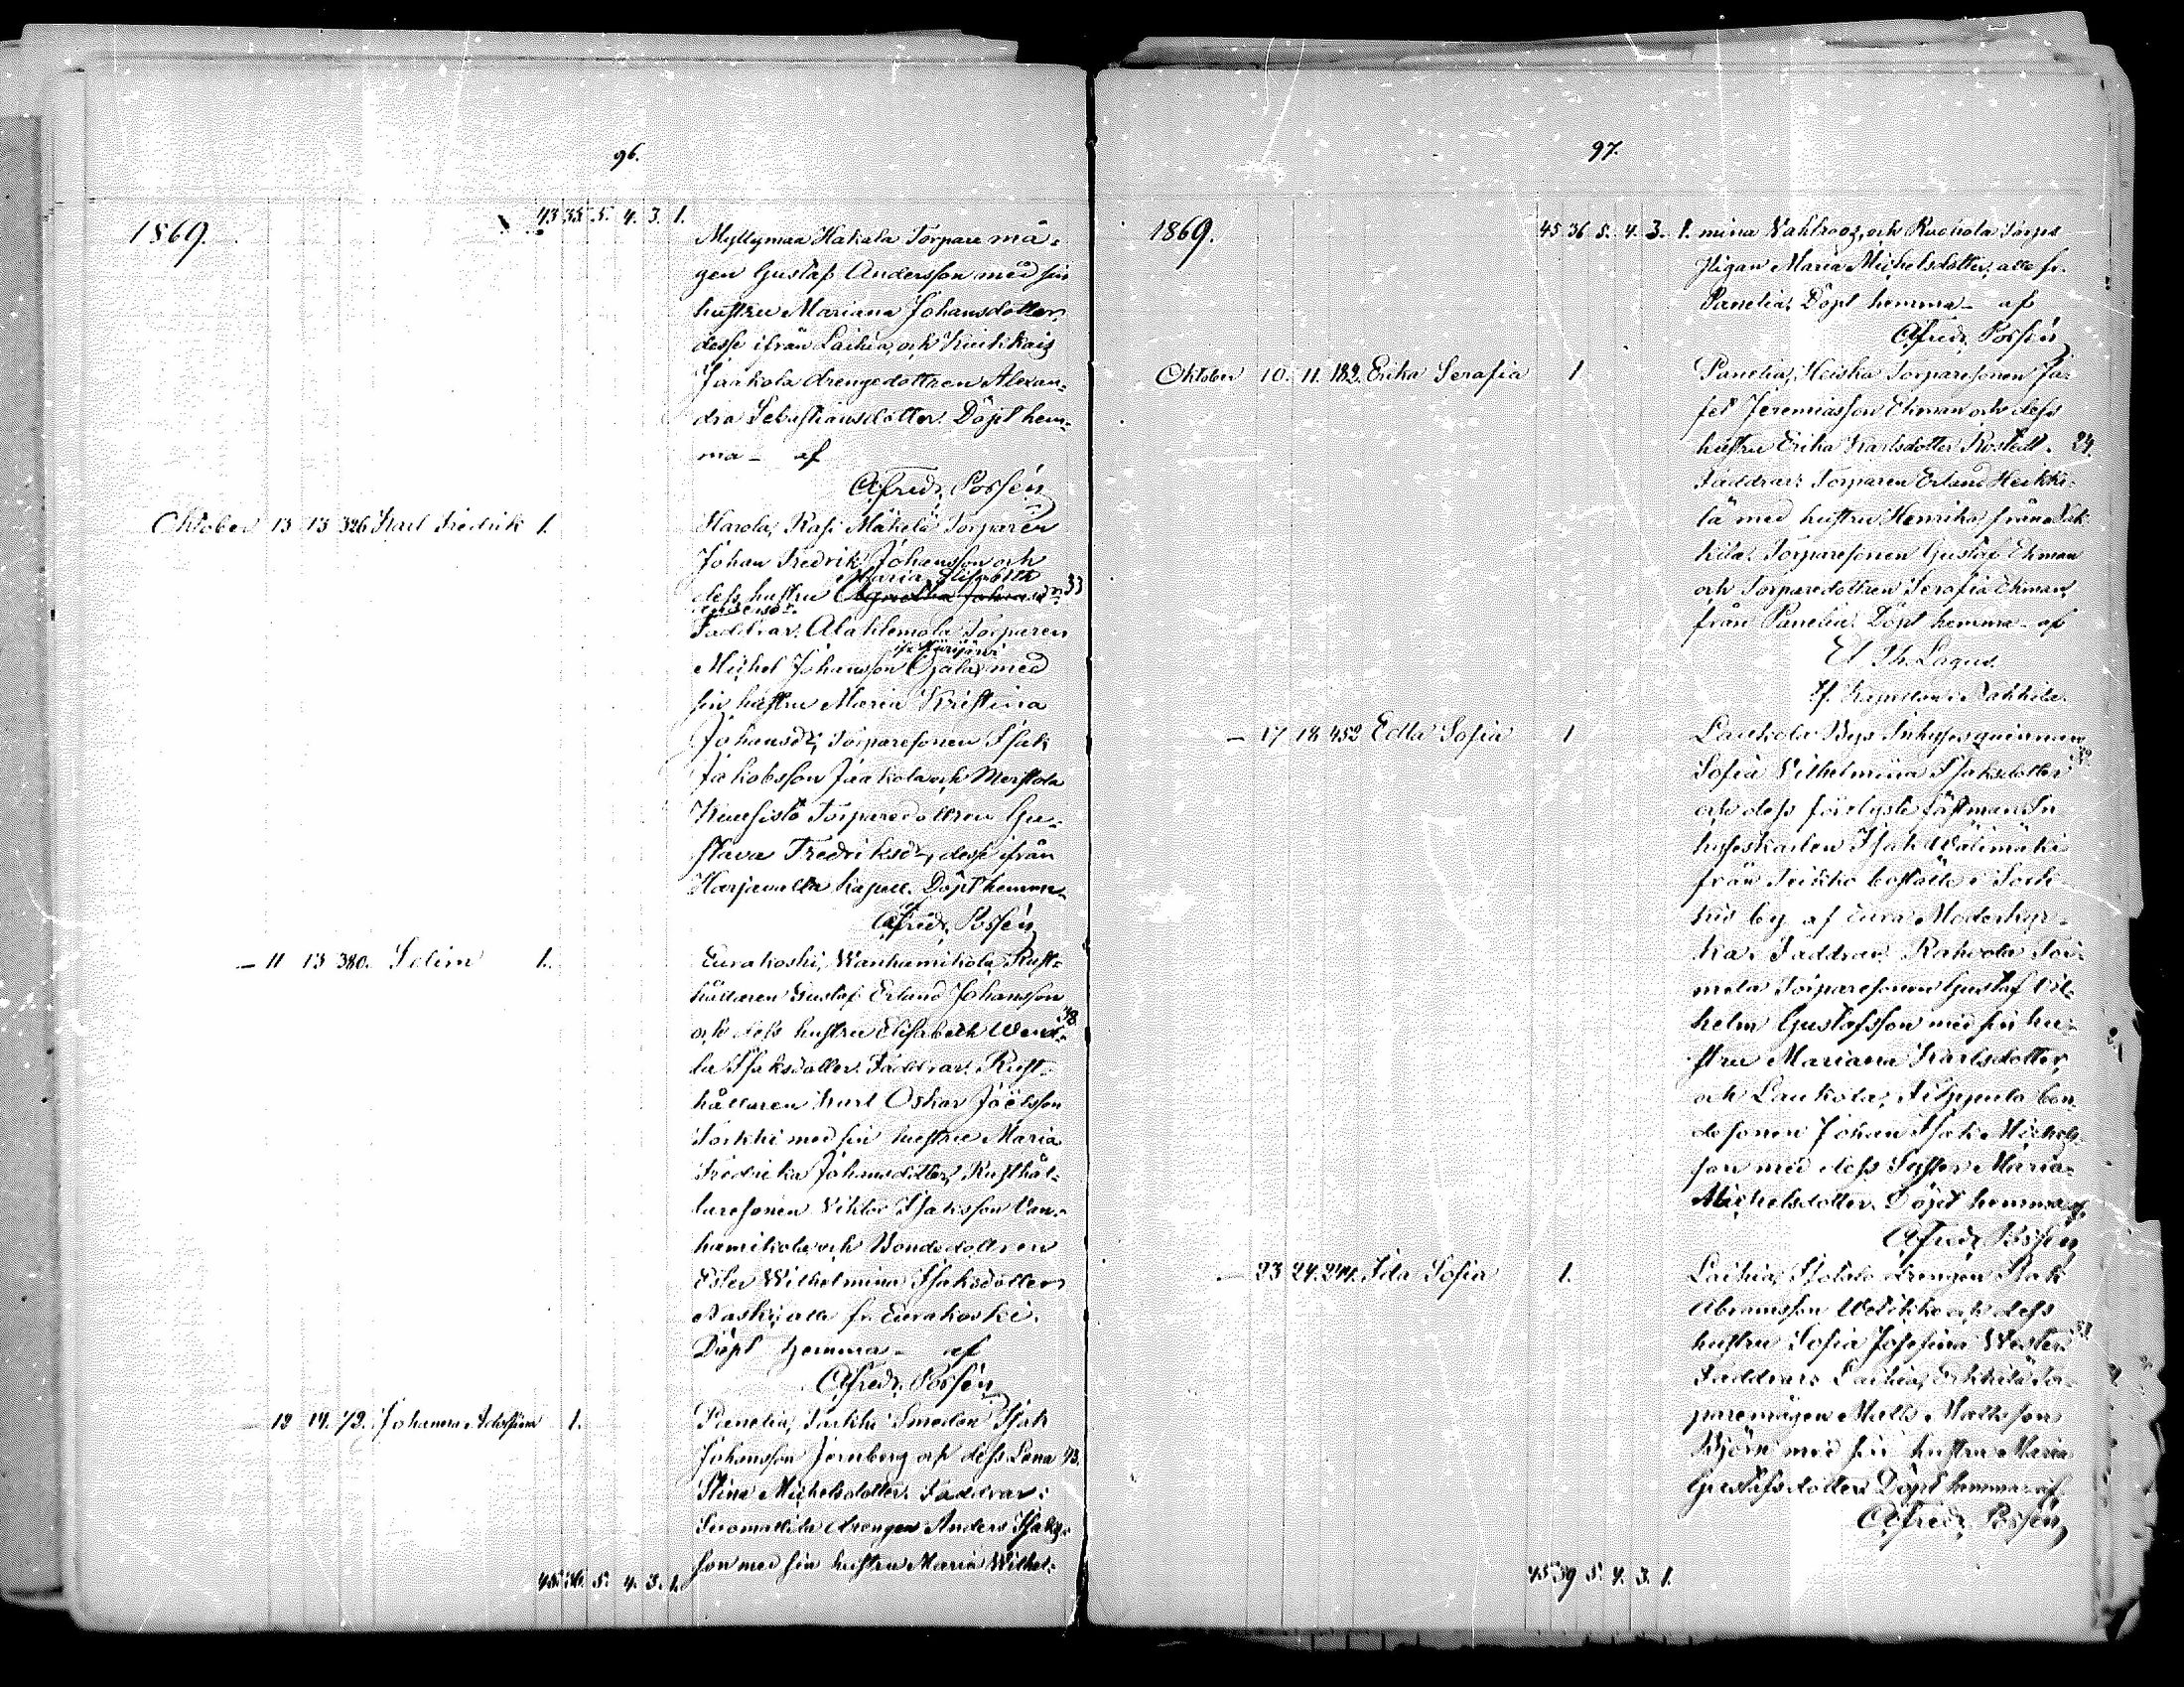 96.
1869.
43 35 5. 4. 3. 1.
Myllymaa Hakala Torpare må-
gen Gustaf Andersson med sin
hustru Mariana Johansdotter,
desse ifrån Laihia, och Kiukkais
Jaakola drengedottren Alexan-
dra Sebastiansdotter. Döpt hem-
ma - af
Alfred Possén
Oktober 13 13 326 Karl Fredrik 1.
Harola, Rasi Mäkelä Torparen
Johan Fredrik Johansson och
Maria Elisabeth
dess hustru 33
Faddrar: Torparen
Michel Johansson Ojala med
sin hustru Maria Kristina
Johansdr, Torparesonen Isak
Jakobsson Jaakola och Merstola
Kuusisto Torparedottren Gu-
stava Fredriksdr, desse ifrån
Harjavalta Kapell. Döpt hemma
Alfred Possén
— 11 13 380. Selim 1.
Eurakoski, Wanhamikola Rust-
hållaren Gustaf Erland Johansson
och dess hustru Elisabeth Wend- 38
la Isaksdotter. Faddrar: Rust-
hållaren Karl Oskar Joëlsson
Torkki med sin hustru Maria
Fredrika Johansdotter, Rusthål-
laresonen Viktor Isaksson Van-
hamikola, och Bondedottren
Ester Wilhelmina Isaksdotter
Naski, alla fr. Eurakoski.
Döpt hemma - af
Alfred Possén
— 12 14. 72. Johanna 1.
Panelia, Smeden Isak
Johansson Jernberg och dess Lena 43.
Stina Michelsdotter. Faddrar:
Suomallila drengen Anders Isaks-
son med sin hustru Maria Wilhel-
45 36 5. 4. 3. 1.
97.
1869.
45 36 5. 4. 3. 1. mina Vahlroos, och Ruohola Torpes
Pigan Maria Michelsdotter, alla fr.
Panelia. Döpt hemma - af
Alfred Possén
Oktober 10. 11. 182. Erika Serafia 1
Panelia, Heiska Torparesonen Ja-
fet Jeremiasson Ekman och dess
hustru Erika Karlsdotter Rostedt. 24.
Faddrar: Torparen Erland Heikki-
lä med hustru Henrika, från Nak-
kila. Torparesonen Gustaf Ekman
och Torparedottren Serafia Ekman,
från Panelia. Döpt hemma - af
El. Th. Lagus.
Kapellan i Nakkila.
— 17 18 452 Edla Sofia 1
Laukola Bys Inhysesqvinnan
Sofia Vilhelmina Isaksdotter
och dess förlyste fästman In-
hyseskarlen Isak Wälimäki
från boställe i Sorki-
ris by af Eura Moderkyr-
ka. Faddrar: Rahvola Toi-
mela Torparesonen Gustaf Vil-
helm Gustafsson med sin hu-
stru Mariana Karlsdotter,
och Laukola, Filppula bon-
desonen Johan Isak Michels-
son med dess Syster Maria
Michelsdotter. Döpt hemma af
Alfred Possén
— 23 24. 241. Ida Sofia 1.
Laihia, Isotalo drengen Isak
Abramsson Wolikko och dess
hustru Sofia Josefina Wester. 33
Faddrar: Laihia, Erkkilä Tor-
paremågen Matts Mattsson
Björn med sin hustru Maria
Gustafsdotter. Döpt hemma af
Alfred Possén
45 39 5. 4. 3. 1.